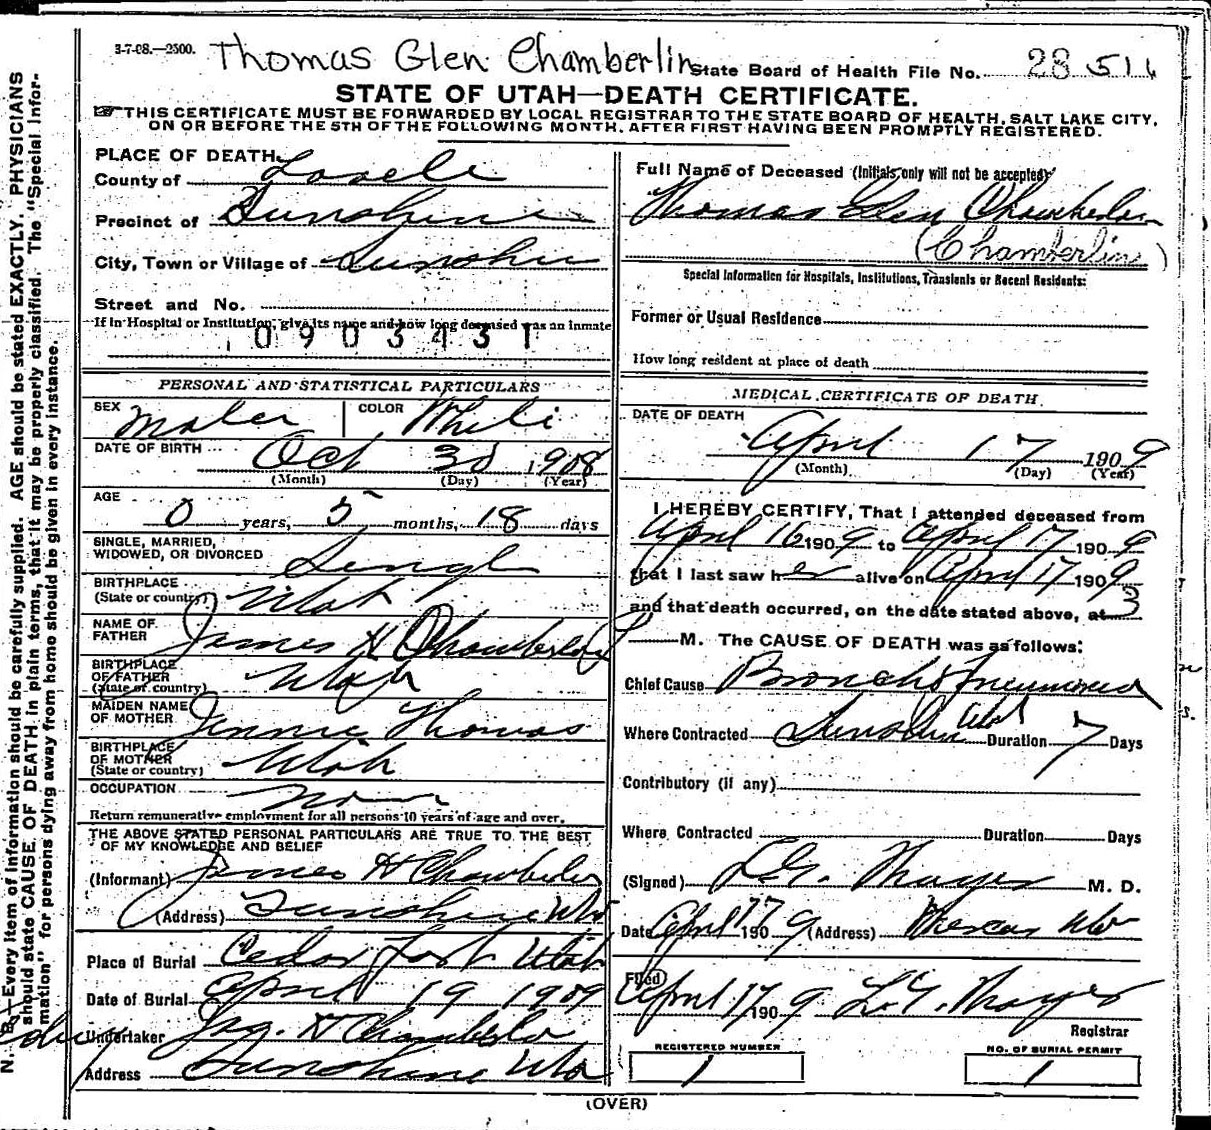 3-7-08.—2500. Thomas Glen Chamberlin State Board of Health File No. 28 511
STATE OF UTAH—DEATH CERTIFICATE.
☞ THIS CERTIFICATE MUST BE FORWARDED BY LOCAL REGISTRAR TO THE STATE BOARD OF HEALTH, SALT LAKE CITY,
ON OR BEFORE THE 5TH OF THE FOLLOWING MONTH, AFTER FIRST HAVING BEEN PROMPTLY REGISTERED.
N. B.—Every item of information should be carefully supplied. AGE should be stated EXACTLY. PHYSICIANS
should state CAUSE OF DEATH in plain terms, that it may be properly classified. The "Special Infor-
mation" for persons dying away from home should be given in every instance.
PLACE OF DEATH
County of Tooele
Precinct of Sunshine
City, Town or Village of Sunshine
Street and No.
If in Hospital or Institution, give its name and how long deceased was an inmate
0903431
PERSONAL AND STATISTICAL PARTICULARS
SEX Male COLOR White
DATE OF BIRTH Oct 30 1908
(Month) (Day) (Year)
AGE
0 years, 5 months, 18 days
SINGLE, MARRIED,
WIDOWED, OR DIVORCED Single
BIRTHPLACE
(State or country) Utah
NAME OF
FATHER James H Chamberlin
BIRTHPLACE
OF FATHER
(State or country) Utah
MAIDEN NAME
OF MOTHER Jennie Thomas
BIRTHPLACE
OF MOTHER
(State or country) Utah
OCCUPATION None
Return remunerative employment for all persons 10 years of age and over.
THE ABOVE STATED PERSONAL PARTICULARS ARE TRUE TO THE BEST
OF MY KNOWLEDGE AND BELIEF
(Informant) James H Chamberlin
(Address) Sunshine Utah
Place of Burial Cedar Fort Utah
Date of Burial April 19 1909
Undertaker Jas. H Chamberlin
Address Sunshine Utah
Full Name of Deceased (Initials only will not be accepted)
Thomas Glen Chamberlin
(Chamberlin)
Special Information for Hospitals, Institutions, Transients or Recent Residents:
Former or Usual Residence
How long resident at place of death
MEDICAL CERTIFICATE OF DEATH
DATE OF DEATH
April 17 1909
(Month) (Day) (Year)
I HEREBY CERTIFY, That I attended deceased from
April 16 1909 to April 17 1909
that I last saw her alive on April 17 1909
and that death occurred, on the date stated above, at 3
P M. The CAUSE OF DEATH was as follows:
Chief Cause Broncho Pneumonia
Where Contracted Sunshine Utah Duration 7 Days
Contributory (if any)
Where Contracted Duration Days
(Signed) L.G. Thayer M. D.
Date April 17 1909 (Address) Mercur Utah
Filed
April 17, 1909 L.G. Thayer
Registrar
REGISTERED NUMBER NO. OF BURIAL PERMIT
1 1
(OVER)